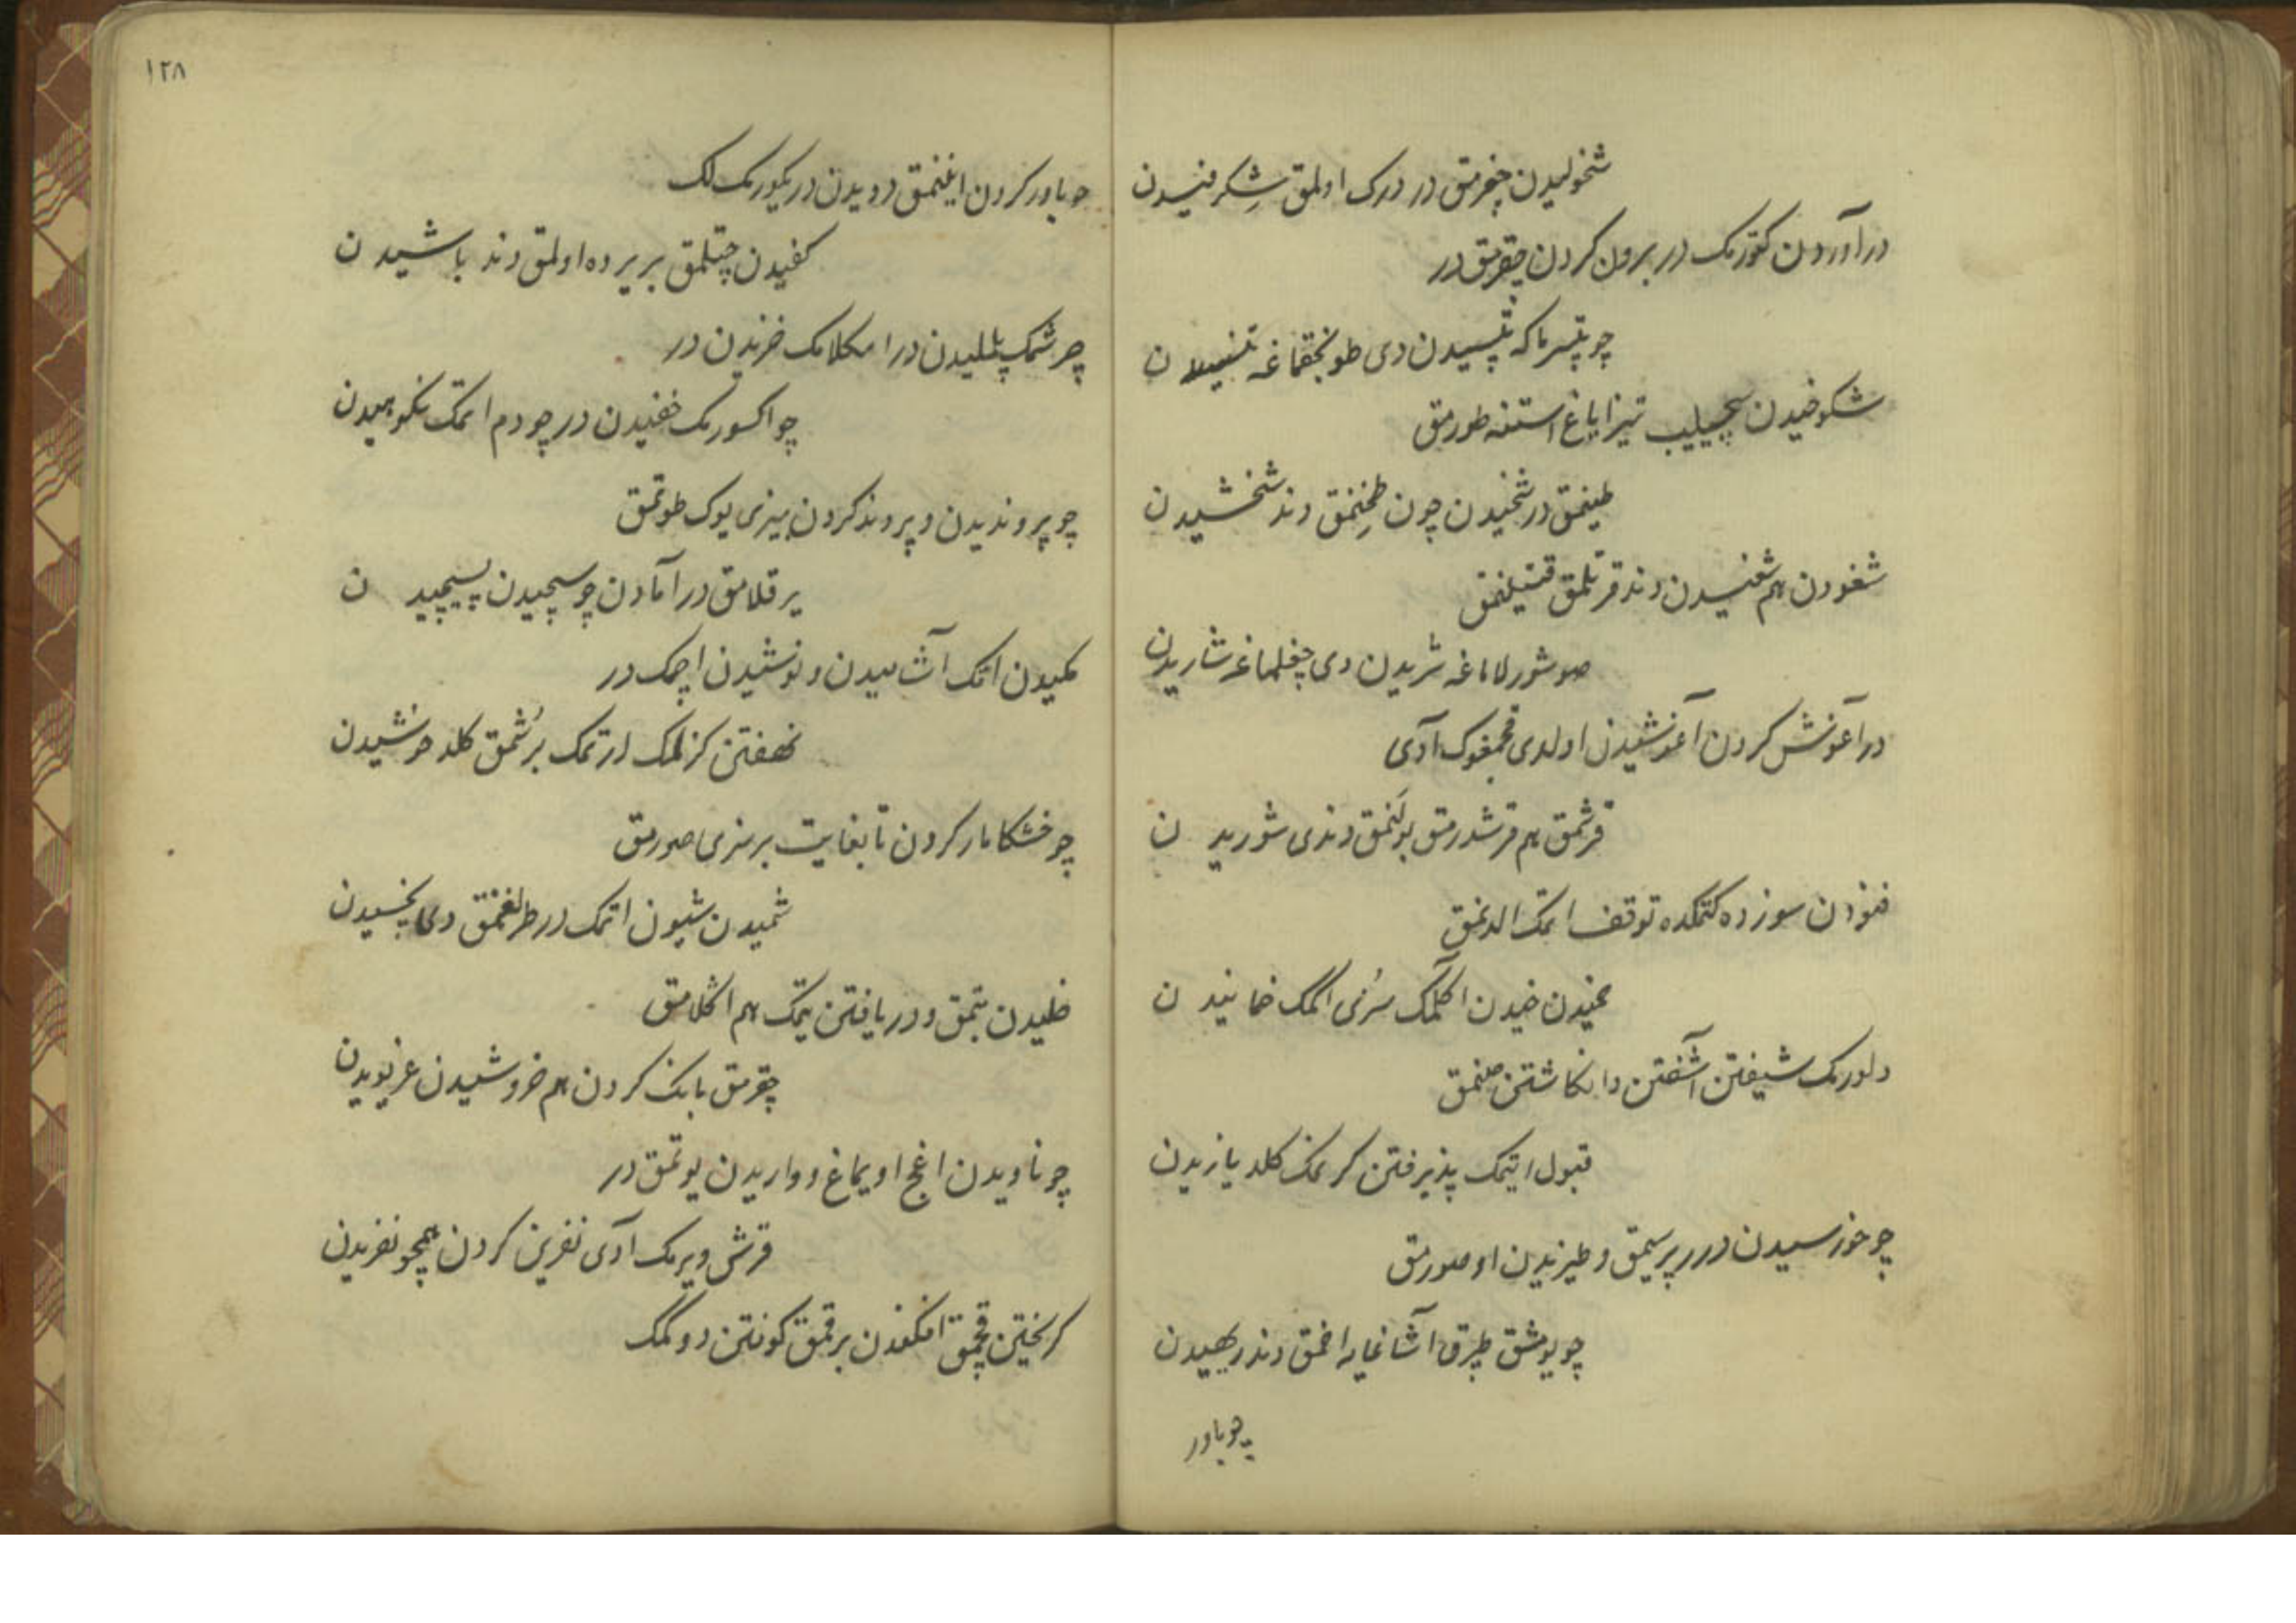 شخولیدن چغرمق در درک اولمق شکرفیدن
درآوردن کتورمک در برون کردن چقرمق در
چو تپسرماکه تپسیدن دی طونجقماغه تنسیدن
شکوخیدن سچیلیب تیز ایاغ استنه طورمق
طیغمق در شخیدن چون طغنمق دند شخشیدن
شغودن هم شغنیدن دند قرتلمق قتیلنمق
صو شورلاماغه شریدن دی چغلماغه شاریدن
درآغوش کردن آغوشیدن اولدی قچمغوک آدی
قرشمق هم قرشدرمق بولنمق دندی شوریدن
غنودن سوزده کتمکده توقف اتمک الدنمق
خمیدن اکلمک سزی اکمک خمانیدن
دلورمک شیفتن آشفتن و انکاشتن صنمق
قبول ایتمک پذیرفتن کرمک کلد یازیدن
چو خورسیدن در پرسیمق و طیزیدن او صورمق
چو یومشق طپرق آشاغایه اخمق دند ریهیدن
چو باور
١٢٨
چو باور کردن اینمق دویدن در یکورمک لک
کفیدن چتلمق بریرده اولمق دند باشیدن
چرشمک پلیدن در امکلامک خزیدن در
چو اکسورمک خفیدن در چو دم اتمک نکوهیدن
چو پروندیدن و پروند کردن بیزی یوک طوتمق
یرقلامق در آمادن چو سیچیدن پسیچیدن
مکیدن اتمک آشامیدن و نوشیدن اچمک در
نهفتن کزلمک ارتمک برشمق کلد خوشیدن
چو خشکامار کردن تا بغایت بر نزی صورمق
شمیدن شیون اتمک در طرلغنمق دی بخسیدن
خلیدن بتمق و دریافتن یتمک هم اکلامق
چقرمق بانک کردن هم خروشیدن غریویدن
چو ناویدن اغج اویماغ و واریدن یوتمق در
قرش ویرمک آدی نفرین کردن همچو نفریدن
کریختن قچمق افکندن برقمق کوفتن دوکمک